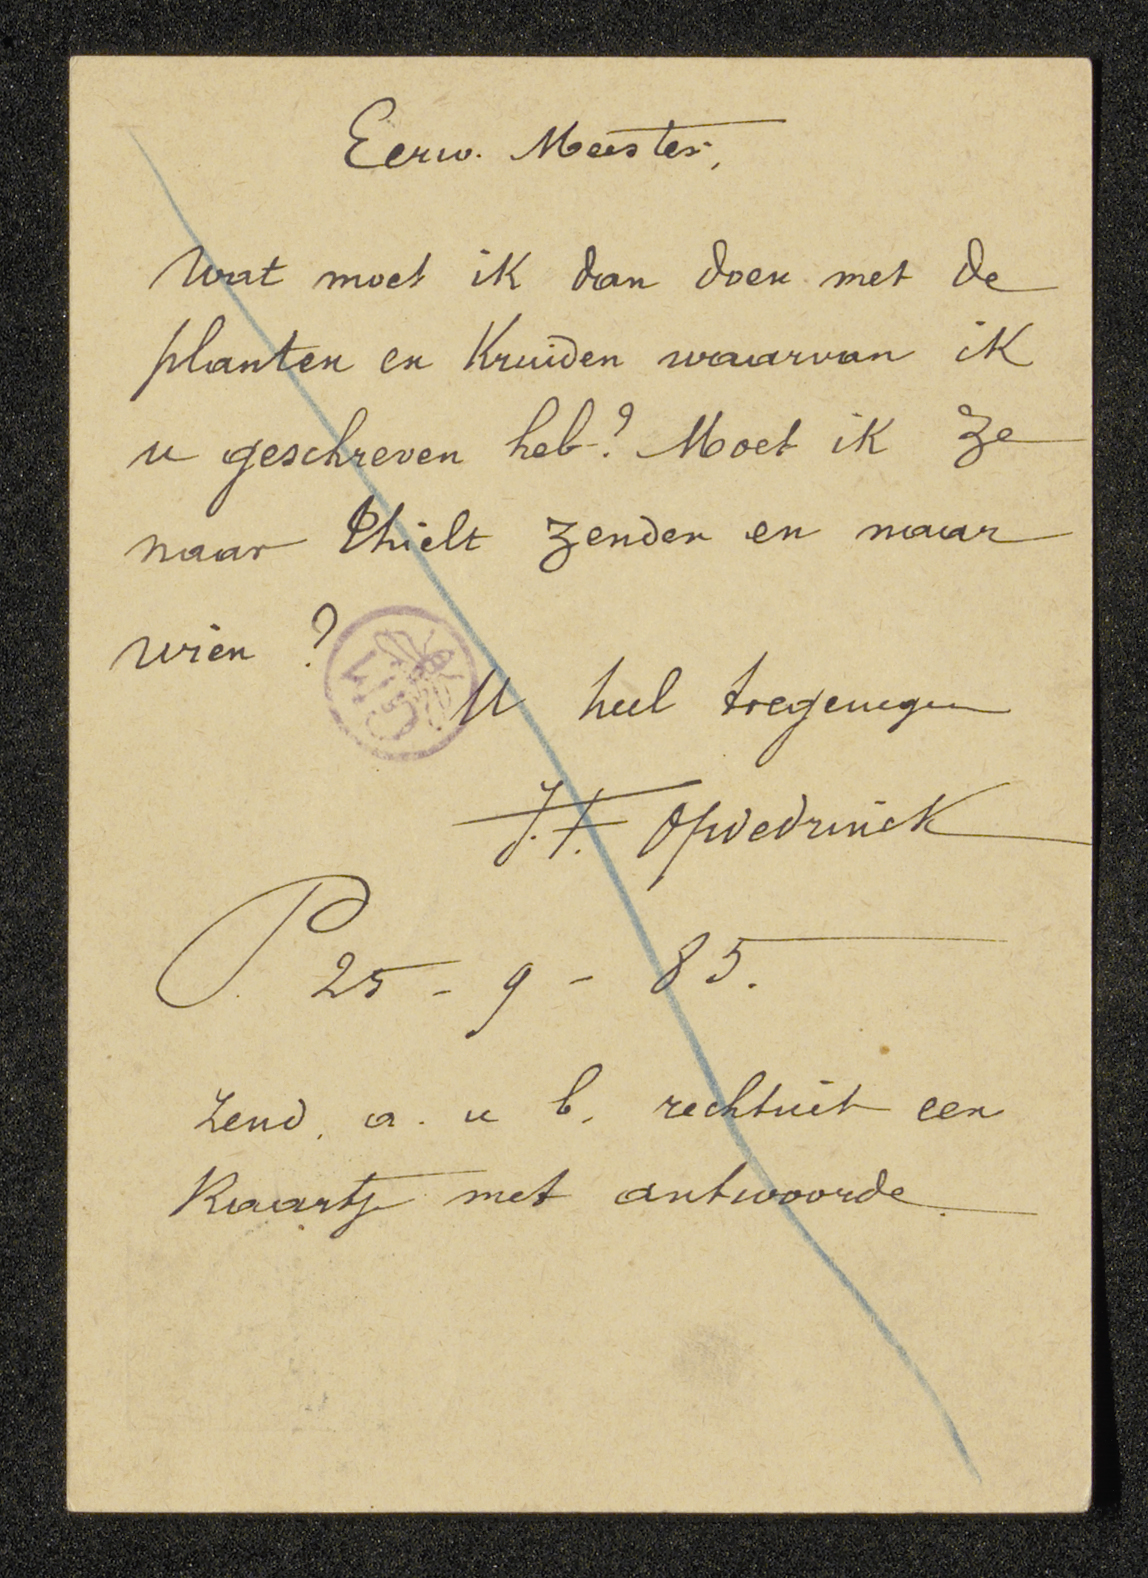 Eerw. Meester,
Wat moet ik dan doen met de
planten en Kruiden waarvan ik
u geschreven heb? Moet ik ze
naar Thielt zenden en naar
wien?
U heel toegenegen
J. F. Opdedrinck
P. 25 - 9 - 85.
Zend. a. u b. rechtuit een
Kaartje met antwoorde.